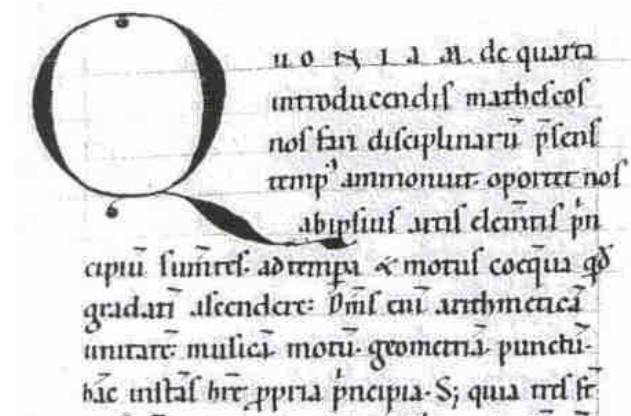 QUONIAM. de quarta
introducendiſ matheſeoſ
noſ fari diſciplinarū p̄ſenſ
temp᾽ ammonuit. oportet noſ
abipſiuſ artiſ elem̄tiſ p̍n
cipiū ſum̄teſ. adtempa & motuſ coeq̄ua q̄d
gradatī aſcendere: Om̄iſ eni᷄ arithmeticā
unitatē. muſicā motū. geometriā punctū.
hāc inſtāſ hr̄e ꝓpria p̍ncipia. S; quia treſ ſt̄